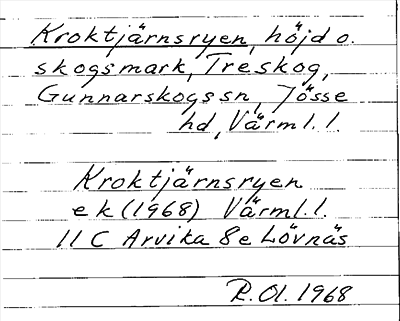 Kroktjärnsryen, höjd o.
skogsmark, Treskog,
Gunnarskogs sn, Jösse
hd, Värml. l.
Kroktjärnsryen
e k (1968) Värml. l.
11 C Arvika 8 e Lövnäs
R. Ol. 1968